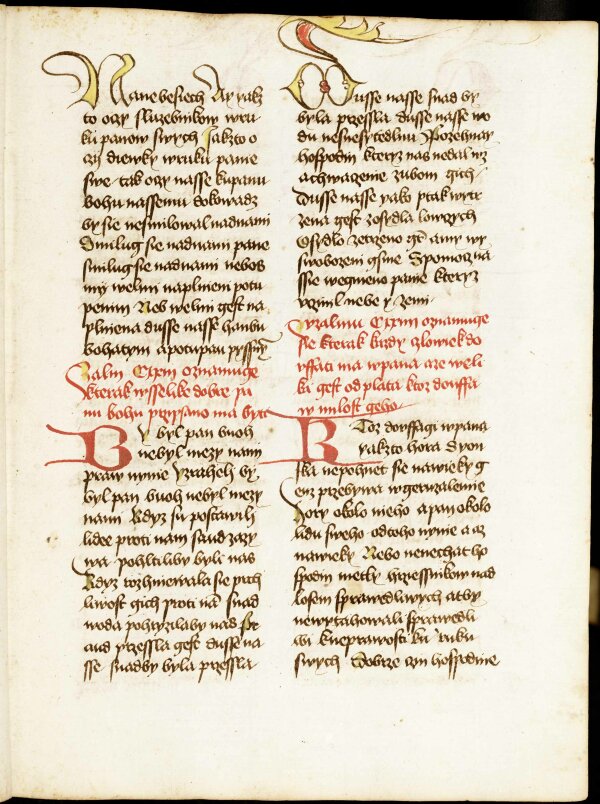 Nanebesiech Ay yakz
to oczy sluzebnikow wru
ku panow swych Jakzto o
czi diewky wruku panie
swe tak oczy nasse kupanu
bohu nassemu dokowadz
by sie nesmilowal nadnami
Smilug sie nadnami pane
smilug sie nadnami nebos
my welmi naplneni potu
penim Neb welmi gest na
plniena dusse nasse hanbu
bohatym apotupau pyssn
Salm Cxxiii oznamuge
kterak wsselike dobre pa
nu bohu przipsano ma byti
By byl pan buoh
nebyl mezy nami
praw nynie yzrahel by
byl pan buoh nebyl mezy
nami kdyz su postawili
lidee proti nam snad zazy
wa pohltiliby byli nas
kdyz rozhniewala sie prch
liwost gich proti na snad
woda pohrzilaby nas Pot
cud przessla gest dusse na
sse snadby byla przessla
Dusse nasse snad by
byla przessla dusse nasse wo
du nesnesytedlnu Pozehnay
hospodin kteryz nas nedal wz
achwacenie zubom gich
Dusse nasse yako ptak wytr
zena gest zosydla lowczych
Osydlo zetrzeno ge amy wy
swobozeni gsme Spomoz na
sse wegmeno panie kteryz
vczinil nebe y zemi
Yzalmu Cxxiiii oznamuge
sie kterak kazdy czlowiek do
vffati ma wpana aze weli
ka gest od plata ktoz douffa
w milost geho
Ktoz dovffagi wpana
yakzto hora Syon
ska nepohnet sie nawieky g
enz przebywa wgeruzalemie
hory okolo nieho apan okolo
lidu sweho odtoho nynie a az
nawieky Nebo nenechat ho
spodin metly hrzessnikow nad
losem sprawedliwych atby
newytahowali sprawedli
wi kneprawosti ku ruku
swych Dobrze czin hospodine